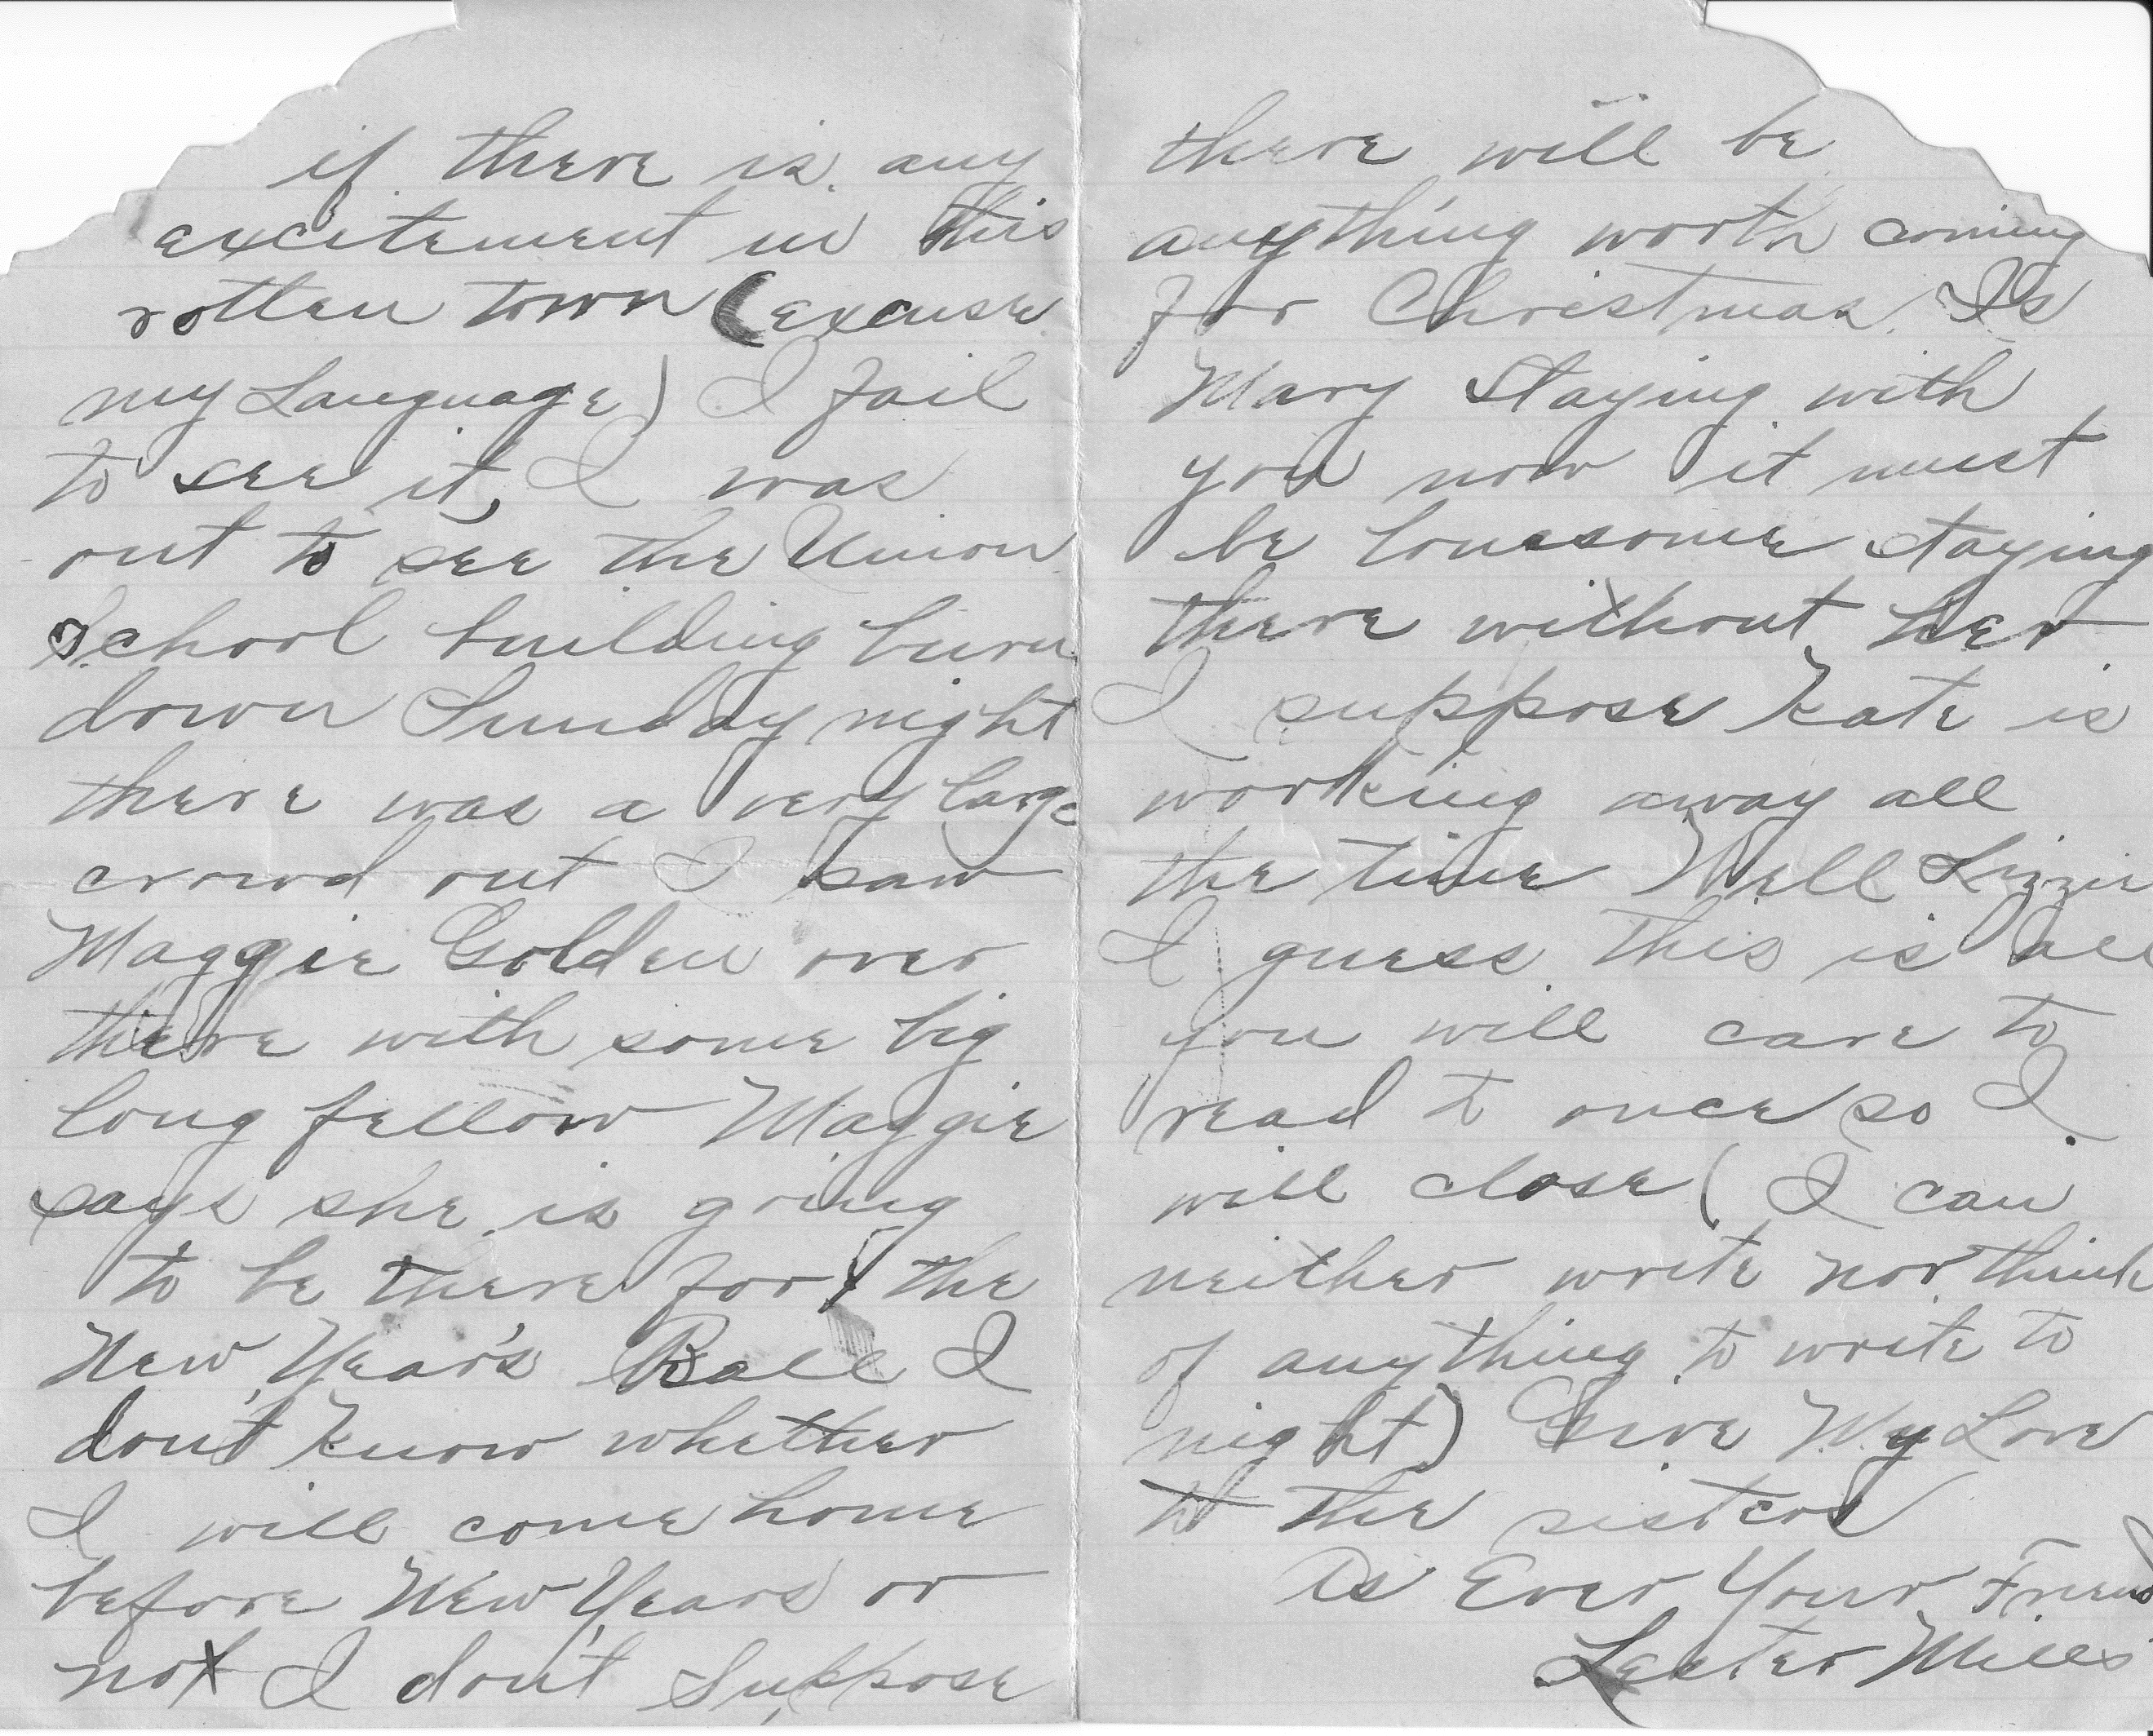 if there is any
excitement in this
rotten town (excuse
my Language) I fail
to see it, I was
out to see the Union
School building burn
down Sunday night
there was a very large
crowd out I saw
Maggie Golden over
there with some big
long fellow Maggie
says she is going
to be there for the
New Year's Ball I
dont know whether
I will come home
before New Years or
not I don't Suppose
there will be
anything worth coming
for Christmas. Is
Mary Staying with
you now it must
be lonesome staying
there without her
I suppose Kate is
working away all
the time Well Lizzie
I guess this is all
you will care to
read to once so I
will close (I can
neither write nor think
of anything to write to
night) Give My Love
to the sisters
As Ever Your Friend
Lester Mills